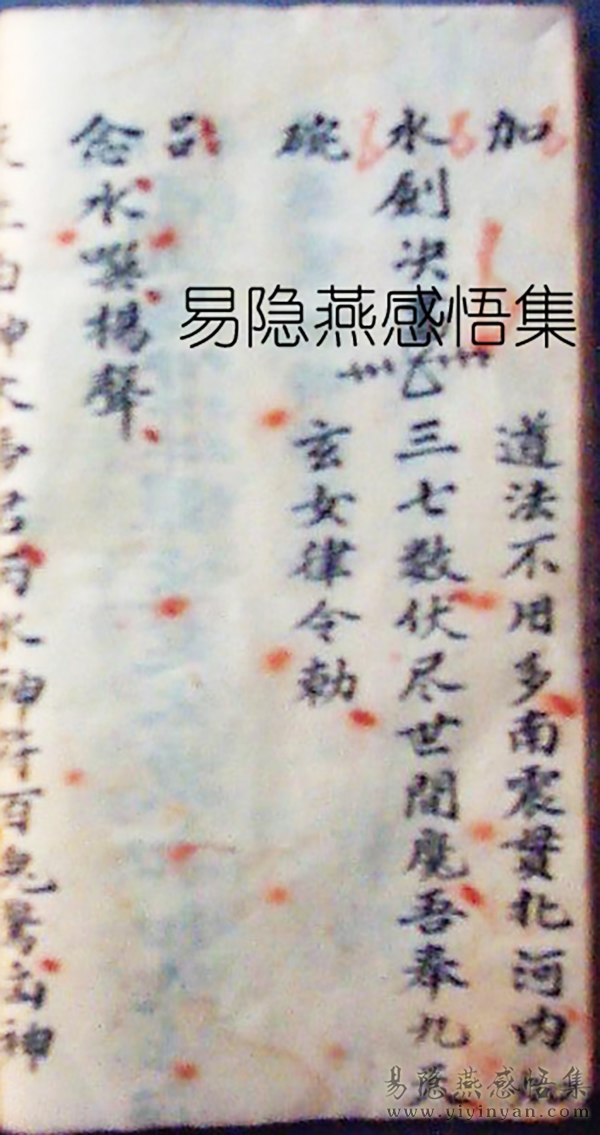 加 道法不用多南震貫北河内
水劍决 三七数伏尽世間魔吾奉九
碗 玄女律令勅
念水噀楊聲
水神符百鬼 神
易隐燕感悟集
易隐燕感悟集
www.yiyinyan.com